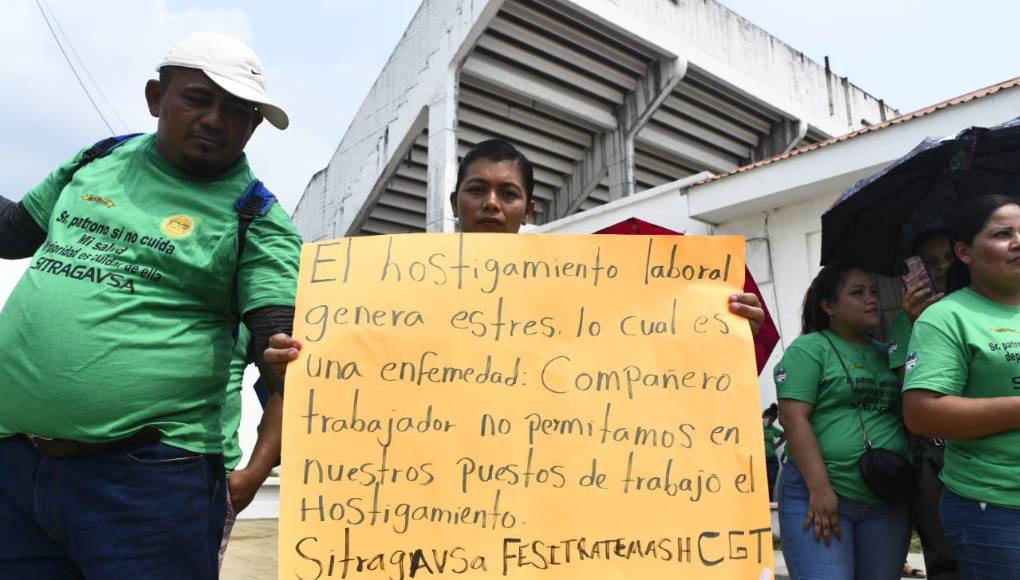 El hostigamiento laboral
genera estres. lo cual es
una enfermedad: Compañero
trabajador no permitamos en
nuestros puestos de trabajo el
Hostigamiento.
SitragAVSa FESITRATEMASH CGT
Sr. patrono si no cuida
Mi salud
SITRAGAVSA
Sr. patrono